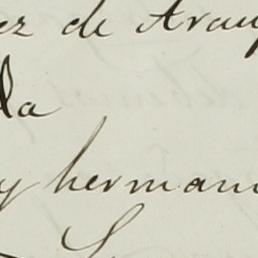 ez de Arauj
la
y herman